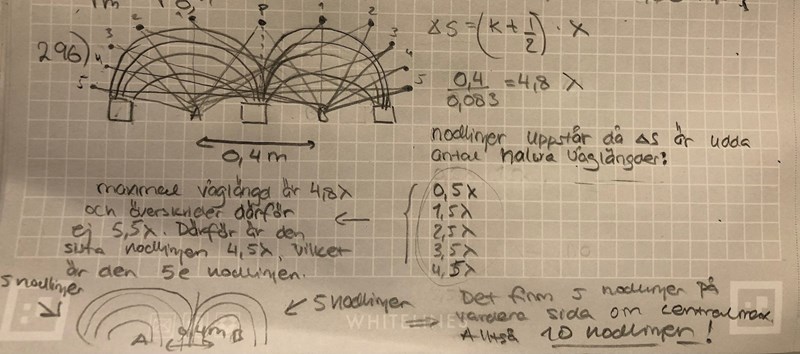 296)
2 1 P 1 2
3 3
4 4
5 5
A B
0,4 m
ΔS = (k + 1/2) · λ
0,4/0,083 = 4,8 λ
nodlinjer uppstår då ΔS är udda
antal halva våglängder:
0,5λ
1,5λ
2,5λ
3,5λ
4,5λ
maximal våglängd är 4,8λ
och överskrider därför
ej 5,5λ. Därför är den
sista nodlinjen 4,5λ, vilket
är den 5e nodlinjen.
5 nodlinjer
5 nodlinjer
A 0,4m B
Det finns 5 nodlinjer på
vardera sida om centralmax.
Alltså 10 nodlinjer!